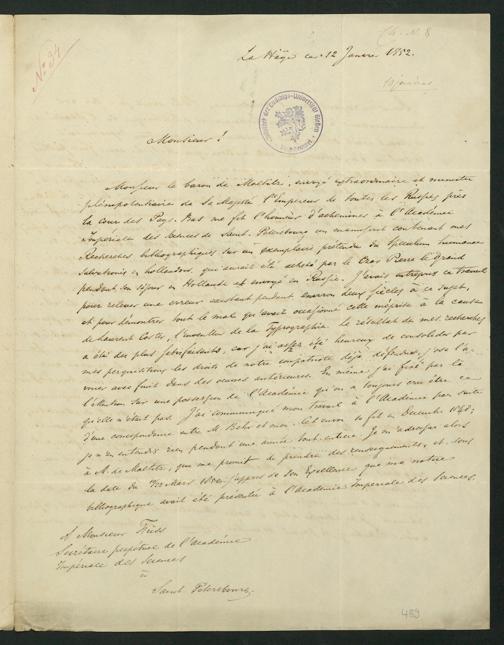 No 34
La Haye ce 12 Janvier 1852.
Monsieur!
Monsieur le baron de Maltitz, envoyé extraordinaire et ministre
plénipotentiaire de Sa Majesté l'Empereur de toutes les Russies près
la cour des Pays-Bas me fit l'honneur d'acheminer à l'Académie
Impériale des Sciences de Saint-Petersbourg un manuscrit contenant mes
Recherches bibliographiques sur un exemplaire prétendu du Speculum humanae
Salvationis en hollandois, qui aurait été acheté par le Czar Pierre le Grand
pendant son séjour en Hollande et envoyé en Russie. J'avais entrepris ce travail
pour relever une erreur existant pendant environ deux siècles à ce sujet,
et pour démontrer tout le mal qu'avait occasionné cette méprise à la cause
de Laurent Coster, l'inventeur de la Typographie. Le résultat de mes recherches
a été des plus satisfaisants, car j'ai assez été heureux de consolider par
mes perquisitions les droits de notre compatriote déjà défendus, j'ose l'a-
vec fruit dans des oeuvres antérieures. En même j'ai fixé par là
l'attention sur une possession de l'Académie qu'on a toujours cru être ce
qu'elle n'était pas. J'ai communiqué mon travail à l'Académie par suite
d'une correspondance entre M. et moi. Cet envoi se fit en Decembre 1848;
je n'en entendis rien pendant une année tout entière. Je m'adressai alors
à M. de Maltitz, qui me promit de prendre des renseignements, et sous
la date du Mars j'appris de Son Excellence que ma notice
bibliographique avait été présentée à l'Académie Impériale des Sciences.
A Monsieur Fuss
Secrétaire perpétuel de l'Académie
Impériale des Sciences
à
Saint Petersbourg.
489